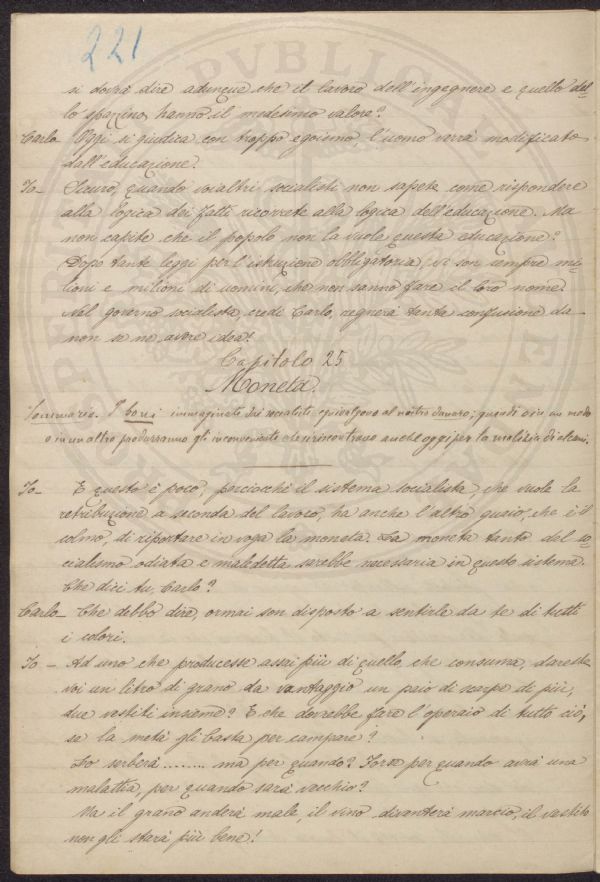 221
si dovrà dire adunque che il lavoro dell'ingegnere e quello del-
lo spazzino hanno il medesimo valore?
Carlo Oggi si giudica con troppo egoismo l'uomo verrà modificato
dall'educazione.
Io- Sicuro, quando voialtri socialisti non sapete come rispondere
alla logica dei fatti ricorrete alla logica dell'educazione. Ma
non capite che il popolo non la vuole questa educazione?
Dopo tante leggi per l'istruzione obbligatoria, vi son sempre mi-
lioni e milioni di uomini, che non sanno fare il loro nome.
Nel governo socialista, credi Carlo, regnerà tanta confusione da
non se ne avere idea!
Capitolo 25
Moneta.
Sommario. I boni immaginati dai socialisti equivalgono al nostro danaro; quindi o in un modo
o in un altro produrranno gli inconvenienti che si riscontrano anche oggi per la malizia di alcuni.
Io- E questo è poco, perciocchè il sistema socialista, che vuole la
retribuzione a seconda del lavoro, ha anche l'altro guaio, che è il
colmo, di riportare in voga la moneta. La moneta tanto del so-
cialismo odiata e maledetta sarebbe necessaria in questo sistema.
Che dici tu, Carlo?
Carlo- Che debbo dire, ormai son disposto a sentirle da te di tutti
i colori.
Io- Ad uno che producesse assai più di quello che consuma, dareste
voi un litro di grano da vantaggio un paio di scarpe di più,
due vestiti insieme? E che dovrebbe fare l'operaio di tutto ciò,
se la metà gli basta per campare?
Lo serberà ........ ma per quando? Forse per quando avrà una
malattia, per quando sarà vecchio?
Ma il grano anderà male, il vino diventerà marcio, il vestito
non gli starà più bene!
PVBLICAE